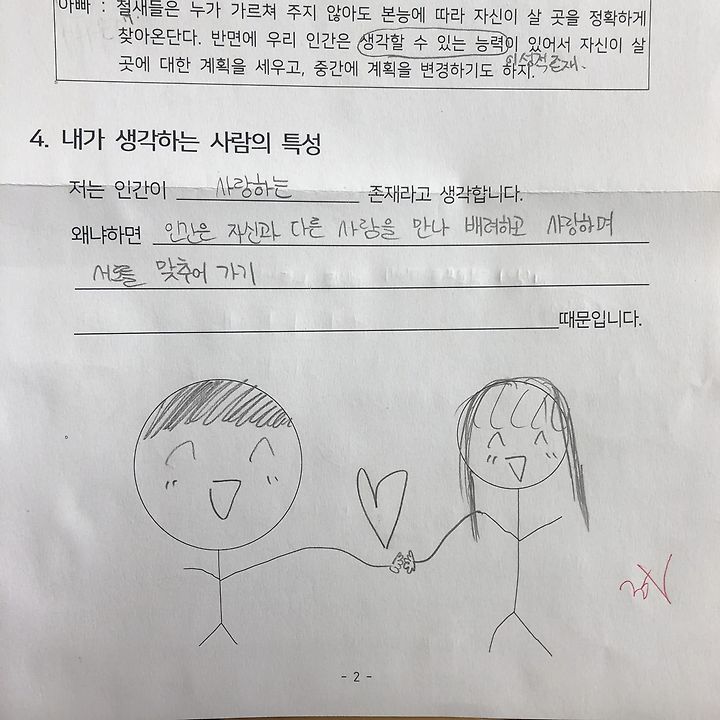 아빠 : 철새들은 누가 가르쳐 주지 않아도 본능에 따라 자신이 살 곳을 정확하게
찾아온단다. 반면에 우리 인간은 생각할 수 있는 능력이 있어서 자신이 살
곳에 대한 계획을 세우고, 중간에 계획을 변경하기도 하지.
이성적 존재.
4. 내가 생각하는 사람의 특성
저는 인간이 사랑하는 존재라고 생각합니다.
왜냐하면 인간은 자신과 다른 사람을 만나 배려하고 사랑하며
서로를 맞추어 가기
때문입니다.
- 2 -